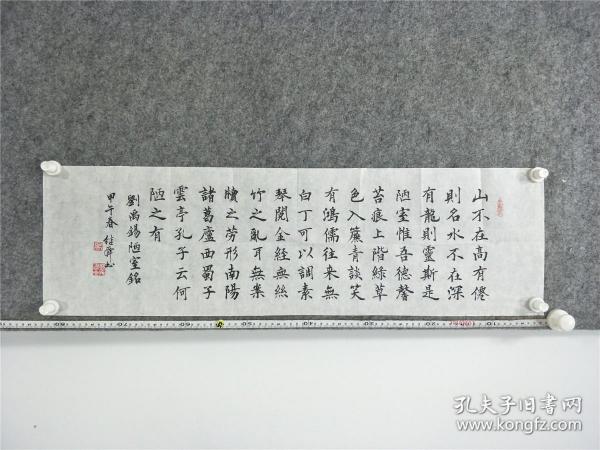 山不在高有僊
則名水不在深
有龍則靈斯是
陋室惟吾德馨
苔痕上階綠草
色入簾青談笑
有鴻儒往来無
白丁可以調素
琴閱金經無絲
竹之亂耳無案
牘之勞形南陽
諸葛廬西蜀子
雲亭孔子云何
陋之有
劉禹錫陋室銘
甲午春
孔夫子旧书网
www.kongfz.com